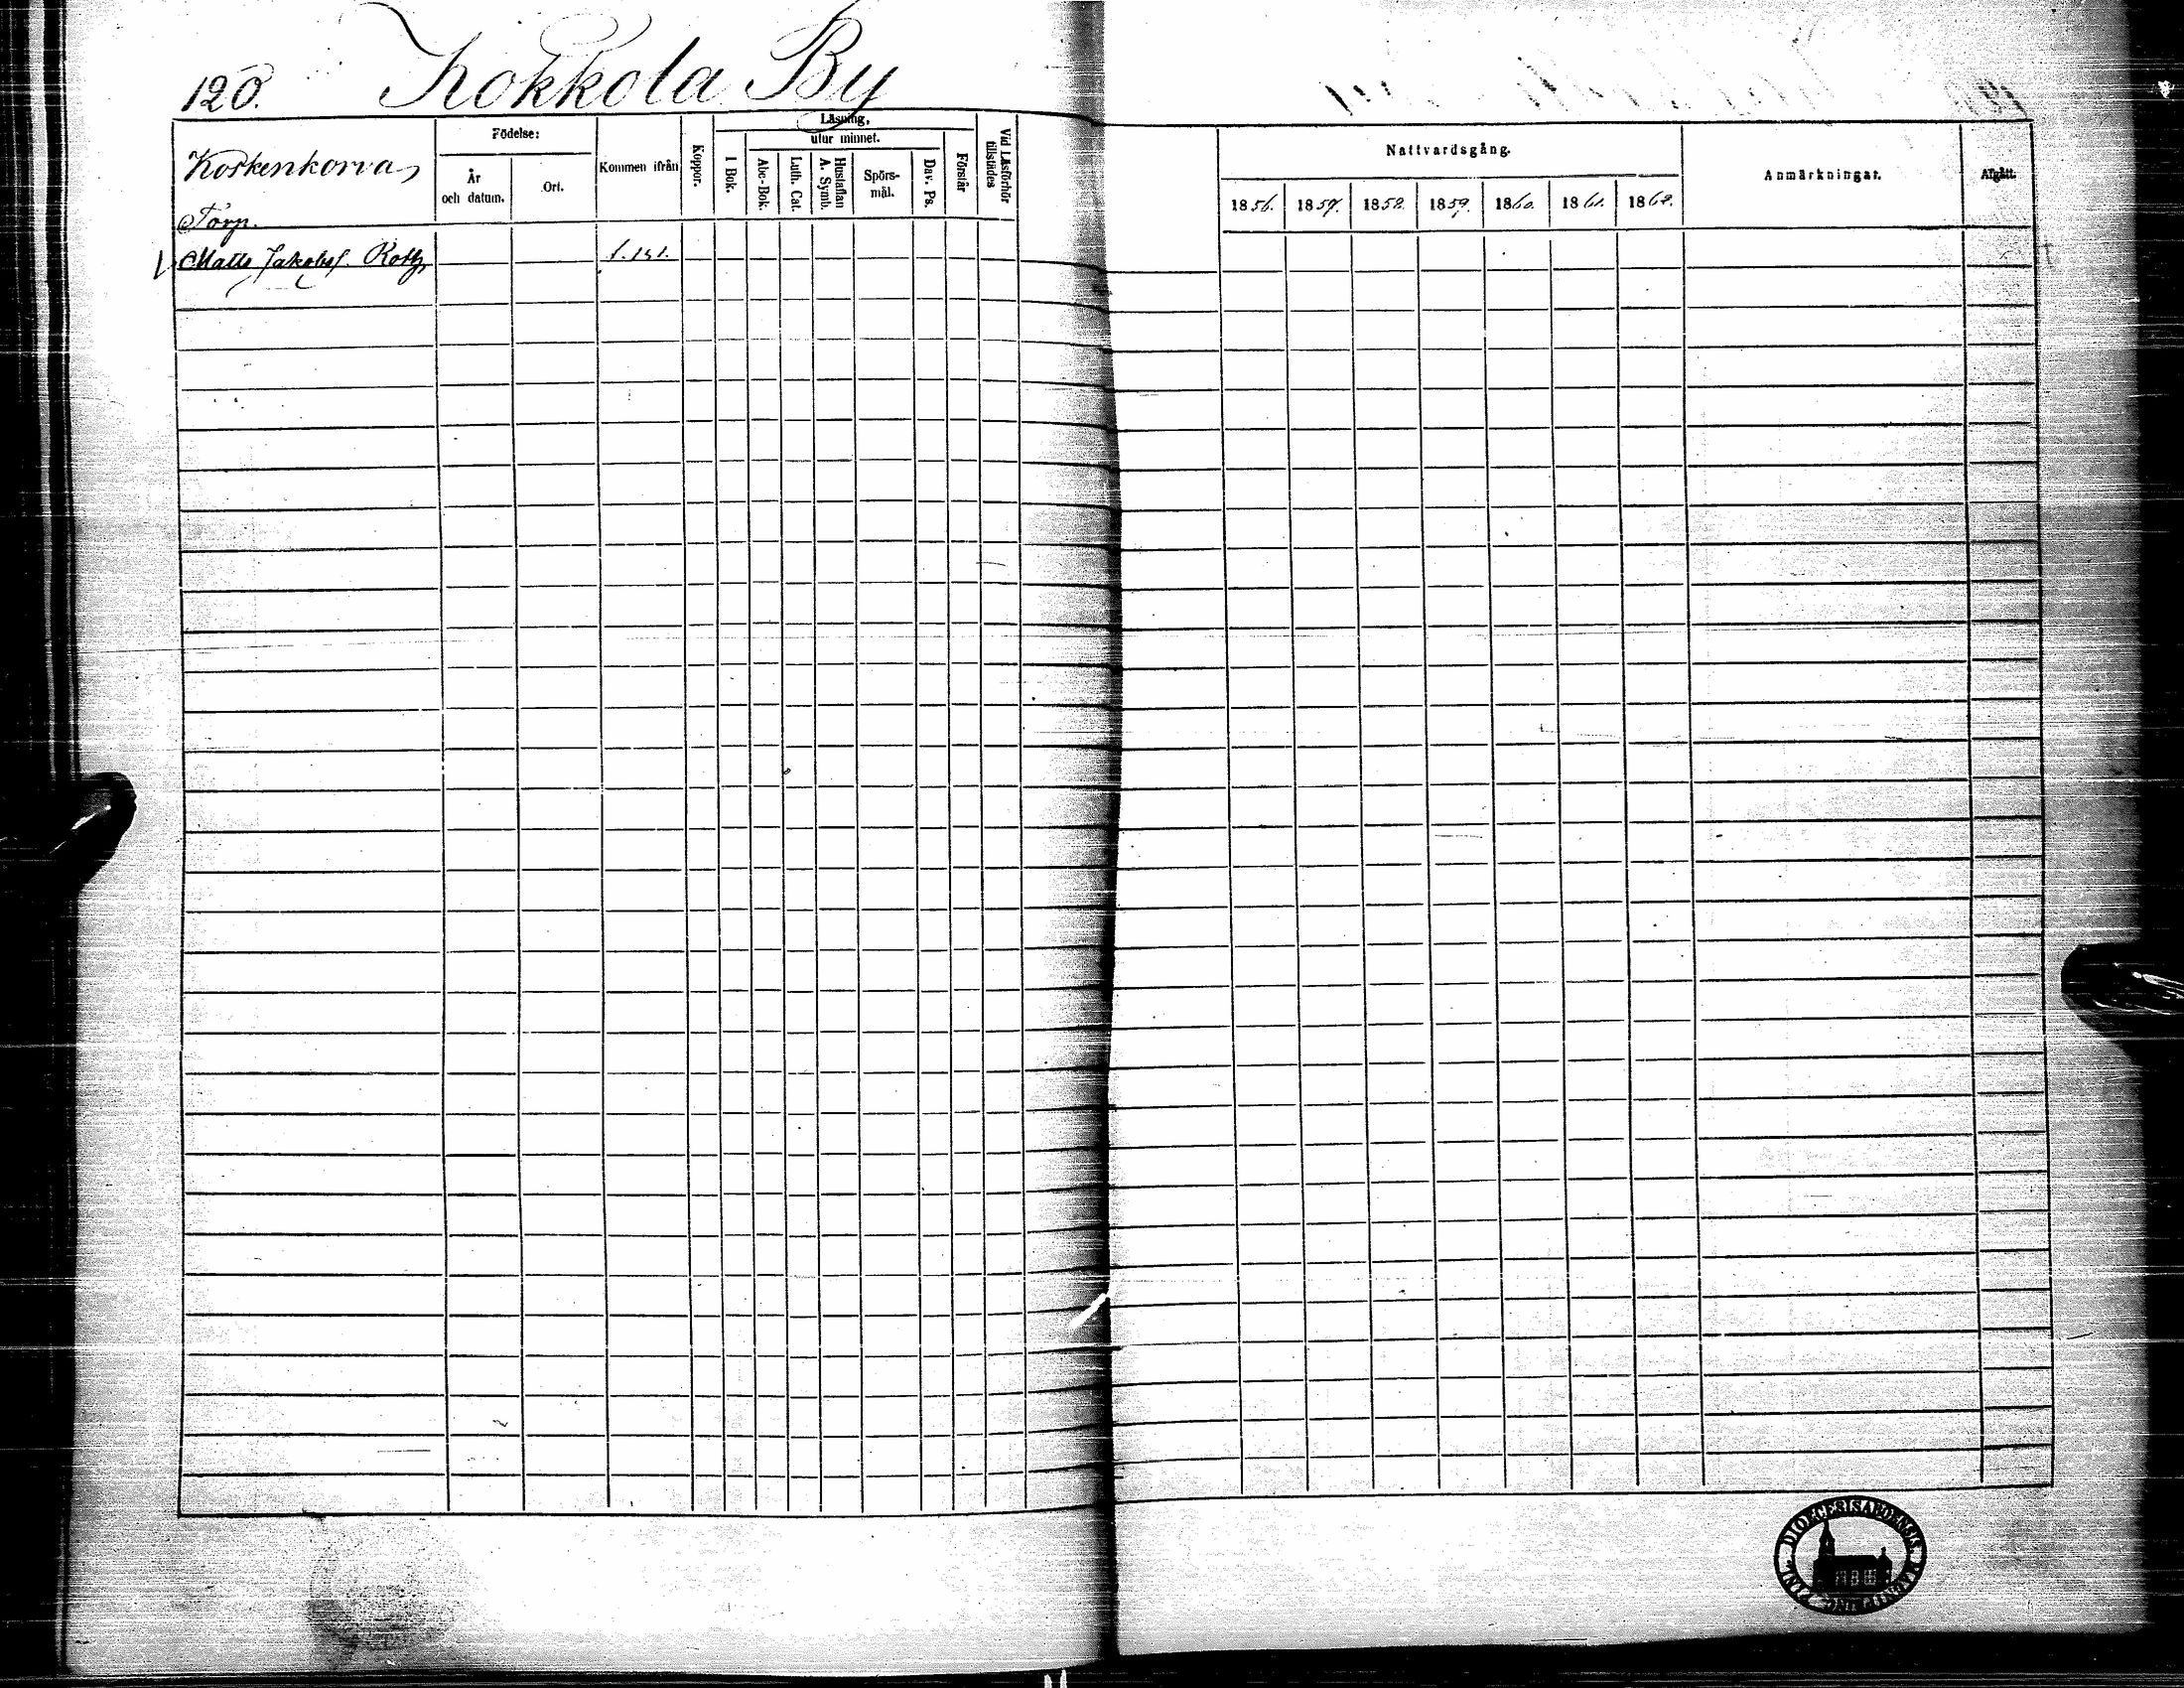 120. Kokkola By
Koskenkorva
Torp.
Födelse:
År och datum.
Ort.
Kommen ifrån
Koppor.
Läsning,
utur minnet.
I Bok.
Abc-Bok.
Luth. Cat.
Hustaflan A. Symb.
Spörs-mål.
Dav. Ps.
Förstår
Vid Läsförhör tillstädes
Nattvardsgång.
1856. 1857. 1858. 1859. 1860. 1861. 1862.
Anmärkningar.
Afgått.
Matts Jakobss. s. 121.